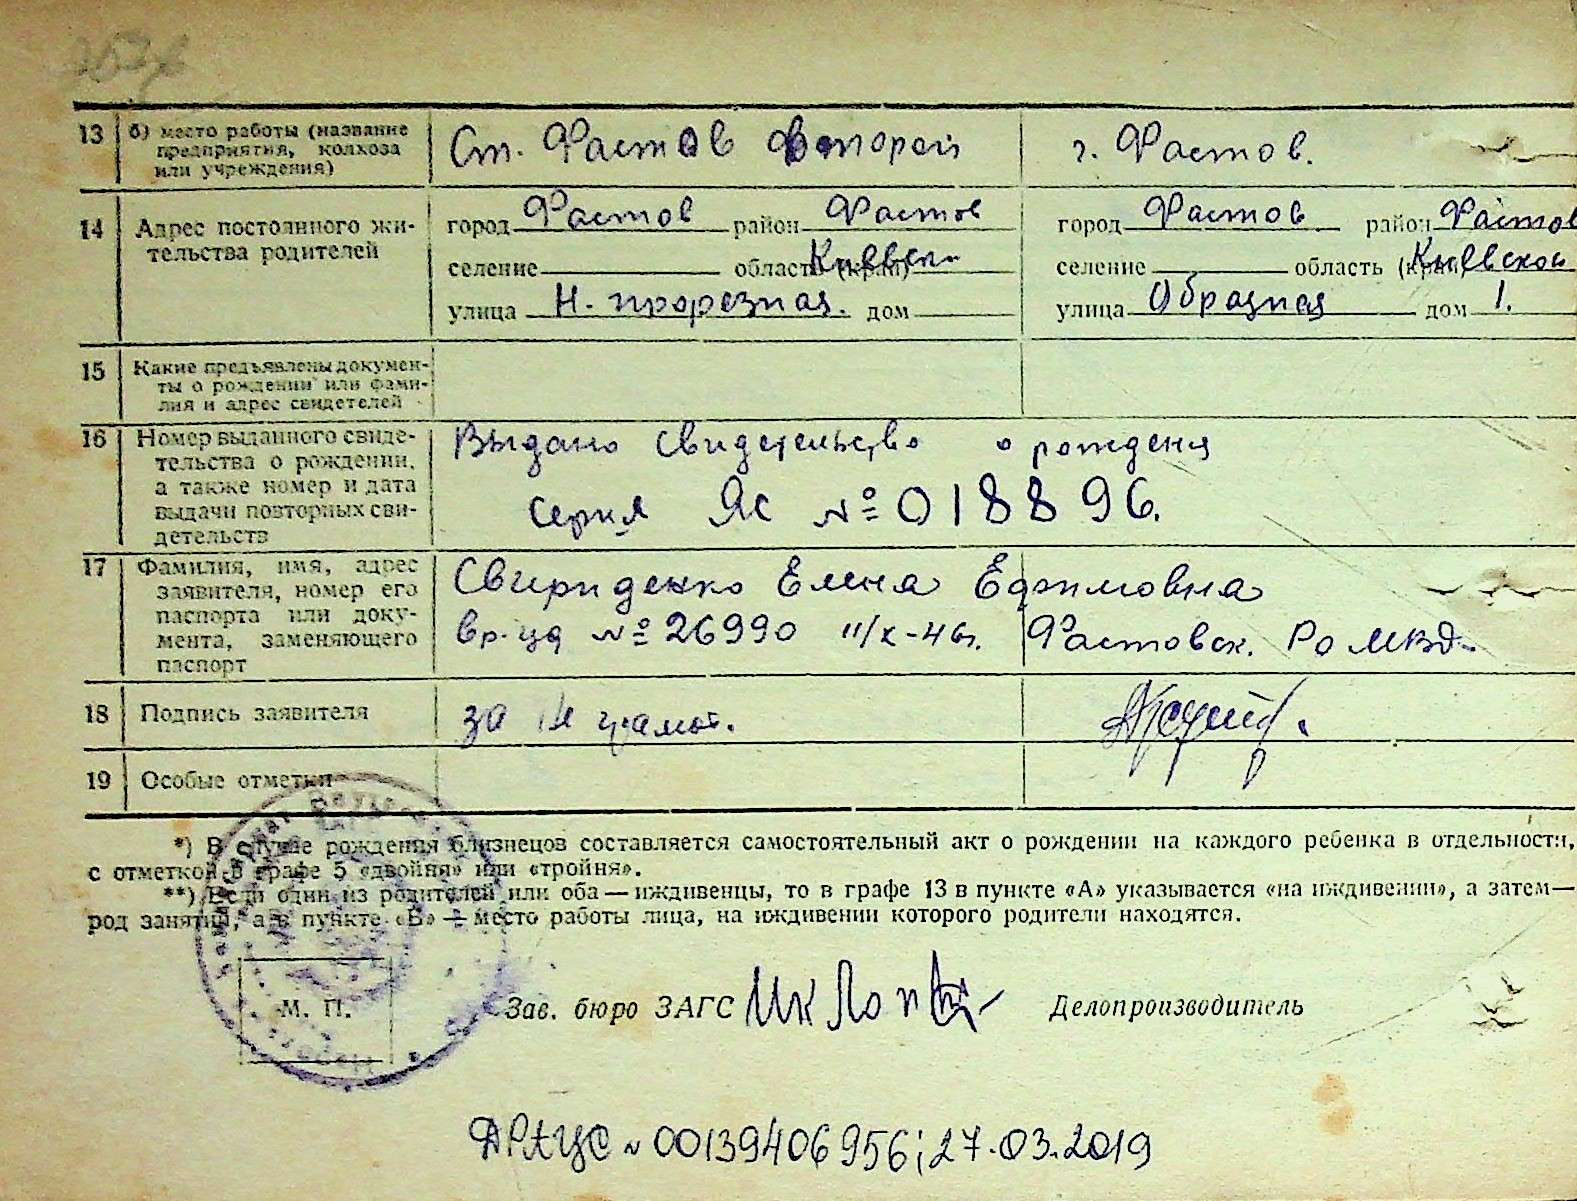 13 б) место работы (название предприятия, колхоза или учреждения) Ст. Фастов второй г. Фастов.
14 Адрес постоянного жительства родителей
город Фастов район Фастов город Фастов район Фастов
селение область (край) Киевск селение область (край) Киевской
улица Н. прорезная. дом улица Образная дом 1.
15 Какие предъявлены документы о рождении или фамилия и адрес свидетелей
16 Номер выданного свидетельства о рождении, а также номер и дата выдачи повторных свидетельств
Выдано свидетельство о рождения
серия Яс № 018896.
17 Фамилия, имя, адрес заявителя, номер его паспорта или документа, заменяющего паспорт
Свириденко Елена Ефимовна
вр. уд № 26990 11/X-46г. Фастовск. Ро МВД
18 Подпись заявителя за не грамот.
19 Особые отметки
*) В случае рождения близнецов составляется самостоятельный акт о рождении на каждого ребенка в отдельности,
с отметкой в графе 5 «двойня» или «тройня».
**) Если один из родителей или оба — иждивенцы, то в графе 13 в пункте «А» указывается «на иждивении», а затем —
род занятий, а в пункте «В» — место работы лица, на иждивении которого родители находятся.
М. П. Зав. бюро ЗАГС Делопроизводитель
ДРАЦС № 00139406956; 27.03.2019